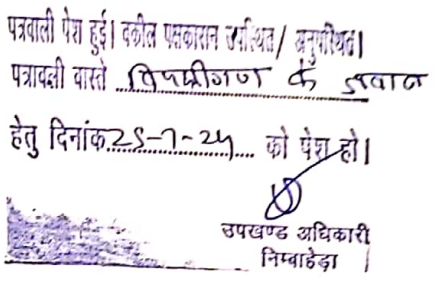 पत्रवाली पेश हुई। वकील पक्षकारान उपस्थित/ अनुपस्थित।
पत्रावली वास्ते विपक्षीगण के जवाब
हेतु दिनांक 25-7-24 को पेश हो।
उपखण्ड अधिकारी
निम्बाहेड़ा